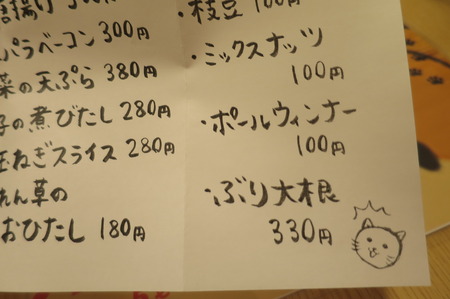 唐揚げ
パラベーコン 300円
菜の天ぷら 380円
子の煮びたし 280円
玉ねぎスライス 280円
れん草の
おひたし 180円
・枝豆 100円
・ミックスナッツ
100円
・ポールウィンナー
100円
・ぶり大根
330円